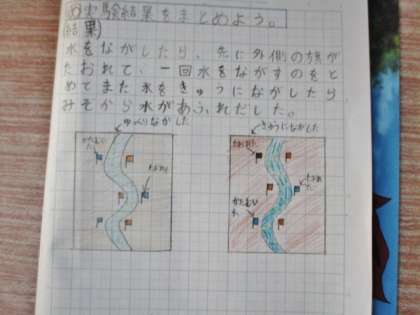 実験結果をまとめよう。
結果
水をながしたら、先に外側の旗が
たおれて、一回水をながすのをと
めてまた水をきゅうにながしたら
みぞから水があふれだした。
ゆっくりながした
きゅうにながした
かたむいた
たおれた
たおれた
かたむいた